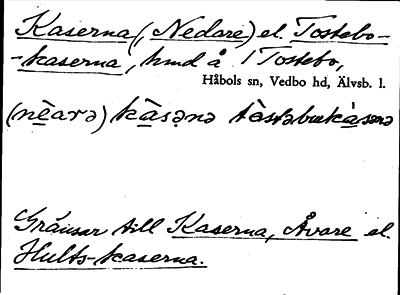 Kaserna (, Nedare) el. Tostebo-
-kaserna, hmd å 1 Tostebo,
Håbols sn, Vedbo hd, Älvsb. l.
(nèarə) kàsəṇə tòstəbukàsəṇə
Gränsar till Kaserna, Åvare el.
Hults-kaserna.